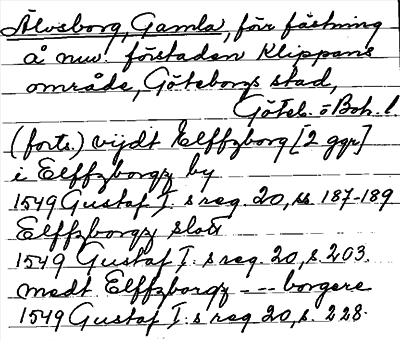 Älvsborg, Gamla, förr fästning
å nuv. förstaden Klippans
område, Göteborgs stad,
Göteb. o Boh. l.
(forts.) vijdt Elffzborg [2 ggr]
i Elffzborgz by
1549 Gustaf I:s reg. 20, ss. 187-189
Elffzborgz slott
1549 Gustaf I:s reg. 20, s. 203.
medt Elffzborgz --- borgere
1549 Gustaf I:s reg 20, s. 228.